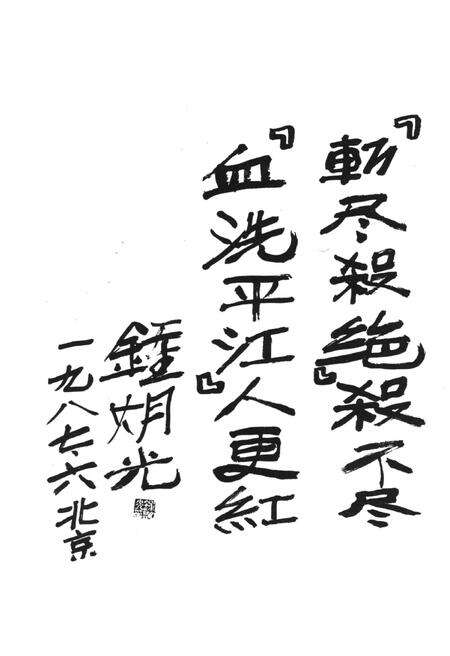 『斬尽殺絶』殺不尽
『血洗平江』人更紅
鍾期光
一九八七、六北京